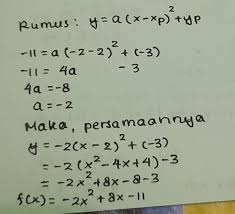 Rumus : y = a (x - xp)² + yp
-11 = a (-2-2)² + (-3)
-11 = 4a - 3
4a = -8
a = -2
Maka, persamaannya
y = -2(x - 2)² + (-3)
= -2 (x² - 4x + 4) - 3
= -2x² + 8x - 8 - 3
f(x) = -2x² + 8x - 11